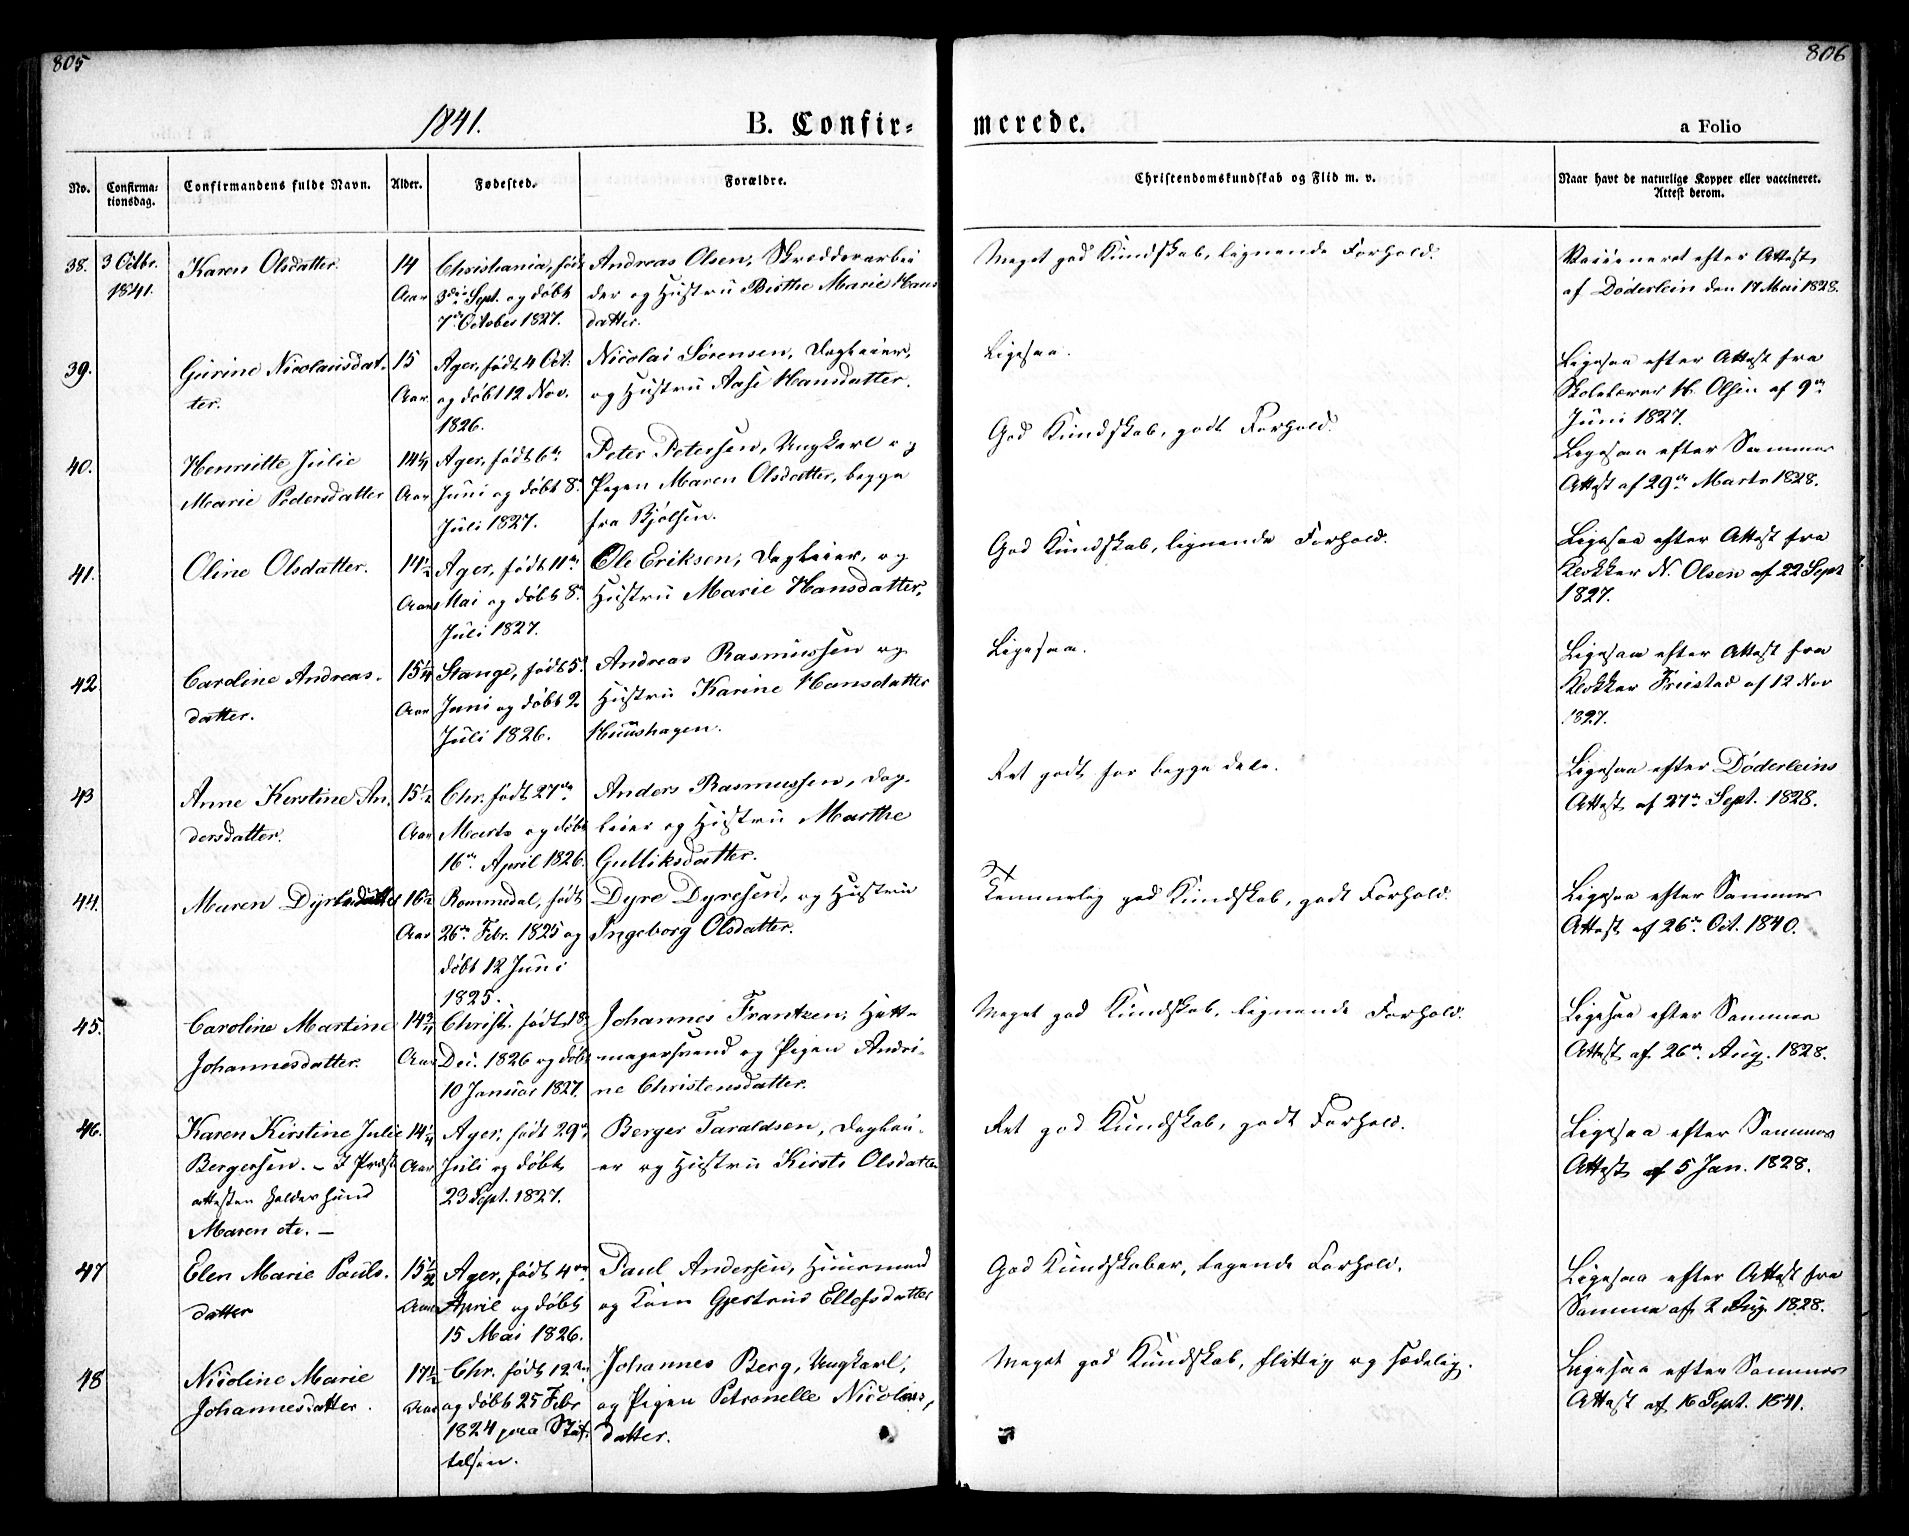 805
806
1841.
B. Confir=
merede.
a Folio
No.
Confirma=
tionsdag.
Confirmandens fulde Navn.
Alder.
Fødested.
Forældre.
Christendomskundskab og Flid m. v.
Naar havt de naturlige Kopper eller vaccineret.
Attest derom.
38.
3 Octbr.
1841.
Karen Olsdatter.
14
Aar
Christiania, født
3die Sept. og døbt
7de October 1827.
Andreas Olsen, Skrædderarbei
der og Hustru Birthe Marie Hans
datter.
Meget god Kundskab, lignende Forhold.
Vaccineret efter Attest
af Døderlein den 17 Mai 1828.
39.
Gurine Nicolaisdat-
ter.
15
Aar
Ager, født 4 Oct.
og døbt 12 Nov.
1826.
Nicolai Sørensen, Dagleier,
og Hustru Aase Hansdatter.
Ligesaa.
Ligesaa efter Attest fra
Skolelærer H. Olsen af 9de
Juni 1827.
40.
Henriette Julie
Marie Pedersdatter
14 1/4
Aar
Ager, født 6te
Juni og døbt 8de
Juli 1827.
Peter Petersen, Ungkarl og
Pigen Maren Olsdatter, begge
fra Bjølsen.
God Kundskab, godt Forhold.
Ligesaa efter Sammes
Attest af 29de Marts 1828.
41.
Oline Olsdatter.
14 1/2
Aar
Ager, født 11te
Mai og døbt 8de
Juli 1827.
Ole Eriksen, Dagleier, og
Hustru Marie Hansdatter,
God Kundskab, lignende Forhold.
Ligesaa efter Attest fra
Klokker N. Olsen af 22 Sept
1827.
42.
Caroline Andreas-
datter.
15 1/4
Aar
Stange, født 5te
Juni og døbt 2
Juli 1826.
Andreas Rasmussen og
Hustru Karine Hansdatter
Huushagen.
Ligesaa.
Ligesaa efter Attest fra
Klokker Friistad af 12 Nov
1827.
43
Anne Kerstine An-
dersdatter.
15 1/2
Aar
Chr. født 27de
Marts og døbt
16de April 1826.
Anders Rasmussen, Dag-
leier og Hustru Marthe
Gulliksdatter.
Ret godt for begge dele.
Ligesaa efter Døderleins
Attest af 27de Sept. 1828.
44.
Maren Dyresdatter
16 1/2
Aar
Rommedal, født
26de Febr. 1825 og
døbt 12 Juni
1825.
Dyre Dyresen, og Hustru
Ingeborg Olsdatter.
Temmelig god Kundskab, godt Forhold.
Ligesaa efter Sammes
Attest af 26de Oct. 1840.
45.
Caroline Martine
Johannesdatter.
14 3/4
Aar
Christ. født 18de
Dec. 1826 og døbt
10 Januar 1827.
Johannes Frantzen, Hatte-
magersvend og Pigen Andri-
ne Christensdatter.
Meget god Kundskab, lignende Forhold.
Ligesaa efter Sammes
Attest af 26de Aug. 1828.
46.
Karen Kirstine Julie
Bergersen. – I Præste
attesten kaldes hund
Maren etc. –
14 1/4
Aar
Ager, født 29de
Juli og døbt
23 Sept. 1827.
Berger Taraldsen, Daglei-
er og Hustru Kirsti Olsdatter
Ret god Kundskab, godt Forhold.
Ligesaa efter Sammes
Attest af 5 Jan. 1828.
47
Elen Marie Pouls-
datter
15 1/2
Aar
Ager, født 4de
April og døbt
15 Mai 1826.
Paul Andersen, Huusmand
og Gjertrud Ellefsdatter
God Kundskaber, Forhold.
Ligesaa efter Attest fra
Samme af 2 Aug. 1828.
48
Nicoline Marie
Johannesdatter.
17 1/2
Aar
Chr. født 12te
og døbt 25 Febr
1824 paa Stif-
telsen.
Johannes Berg, Ungkarl,
og Pigen Petronelle Nicolais,
datter.
Meget god Kundskab, flittig og sædelig.
Ligesaa efter Sammes
Attest af 16 Sept. 1841.